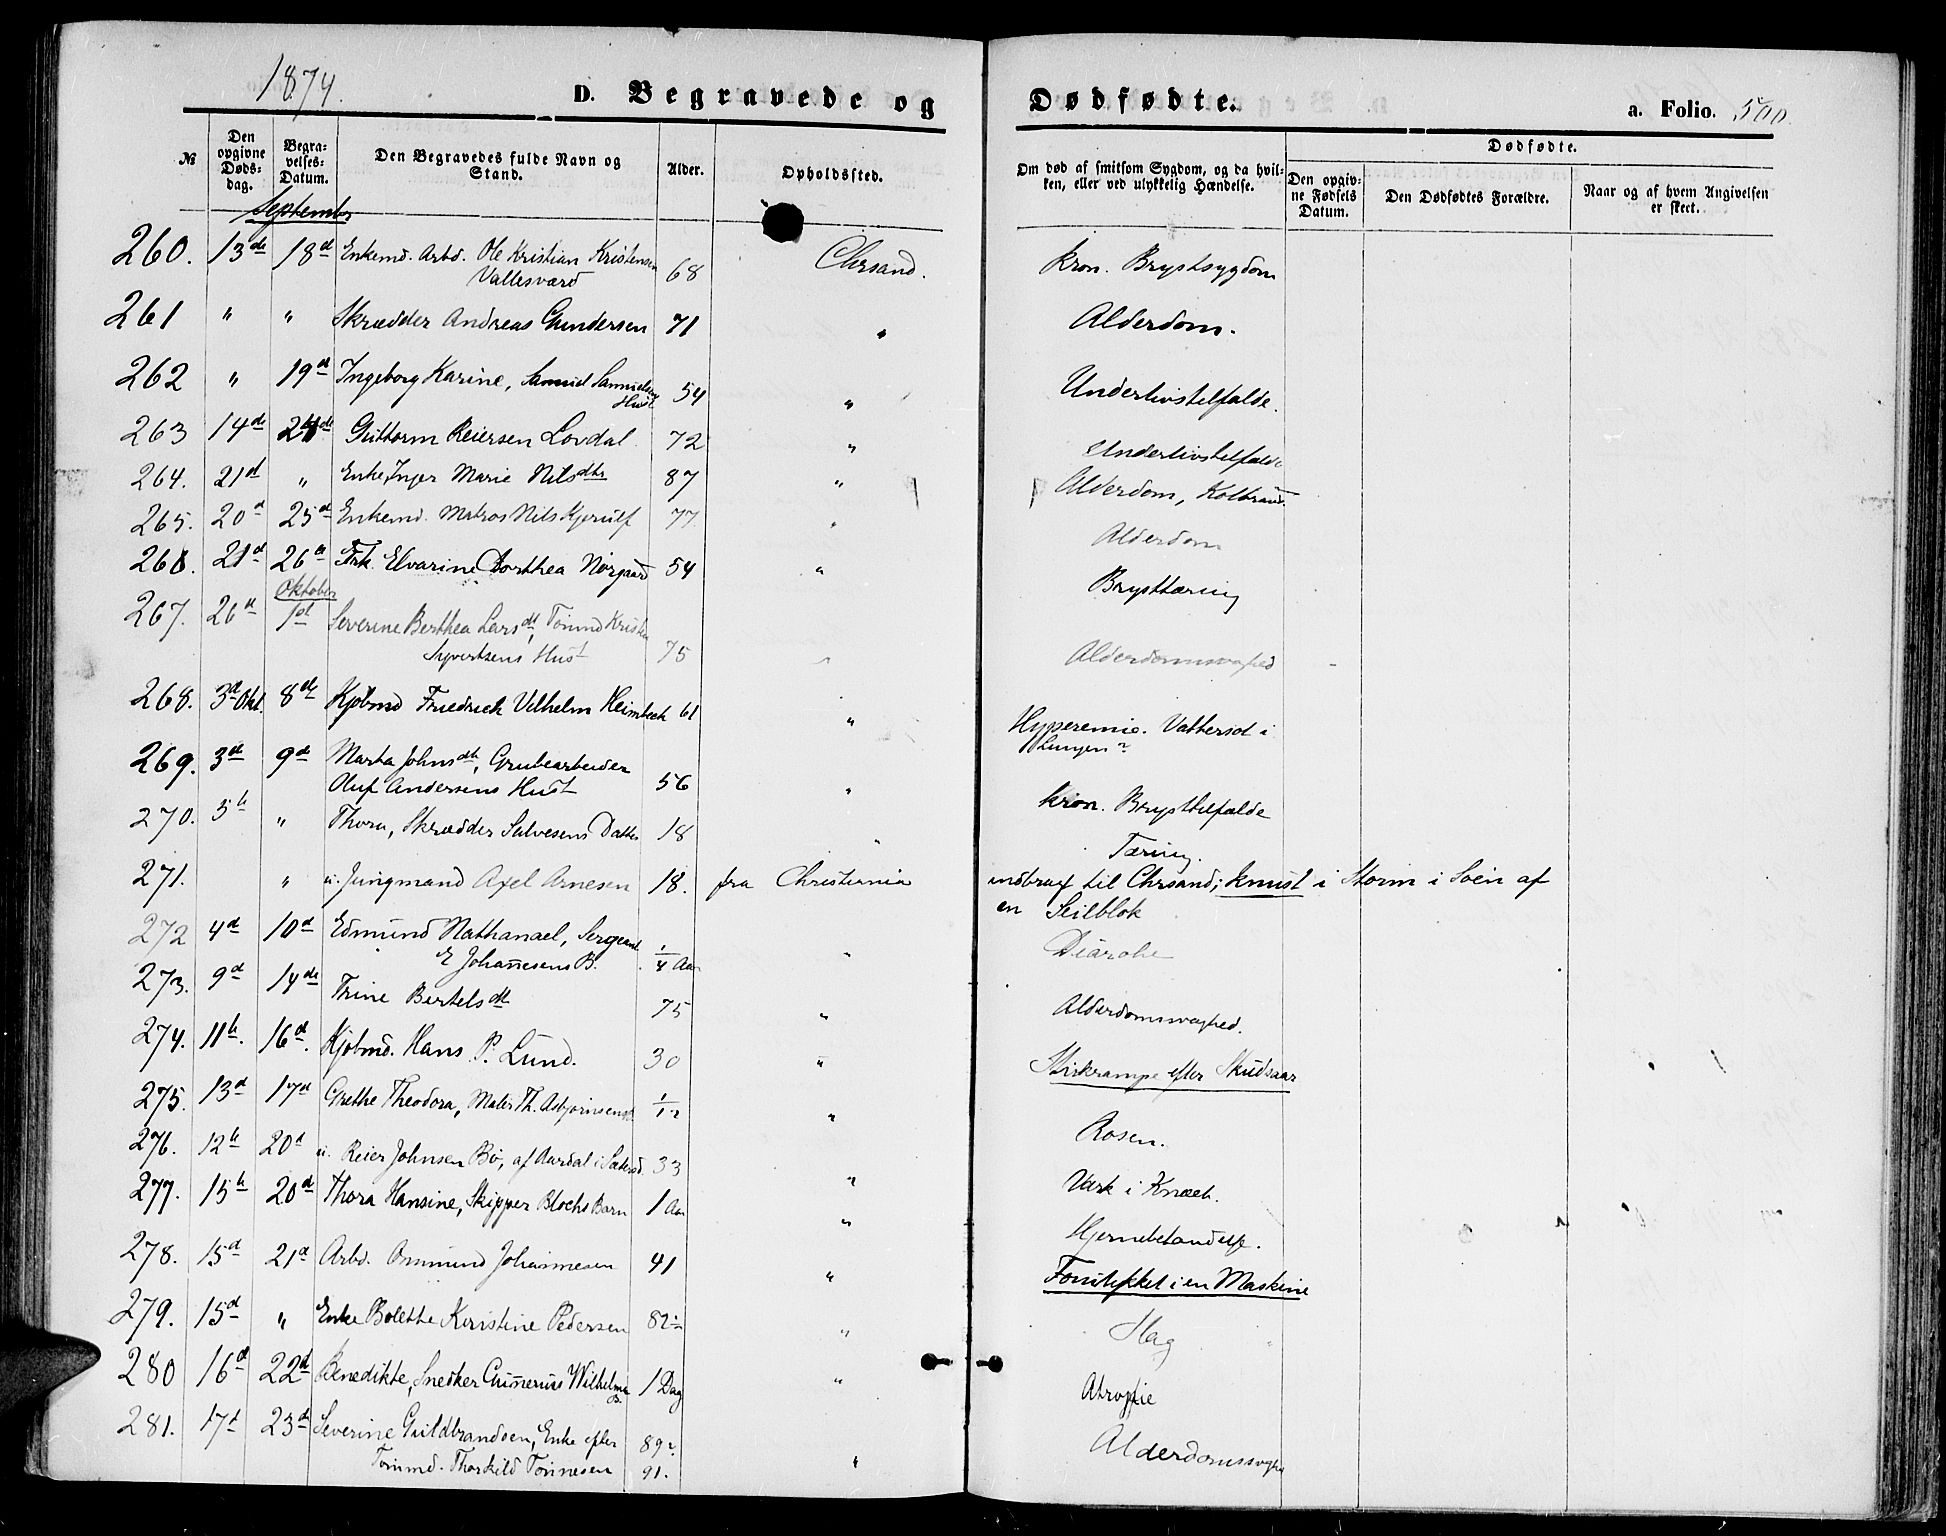 1874.
D. Begravede og Dødfødte.
a. Folio. 500.
№
Den opgivne Døds-dag.
Begra-velses-Datum.
Den Begravedes fulde Navn og Stand.
Alder.
Opholdssted.
Om død af smitsom Sygdom, og da hvil-ken, eller ved ulykkelig Hændelse.
Dødfødte.
Den opgiv-ne Fødsels Datum.
Den Dødfødtes Forældre.
Naar og af hvem Angivelsen er skeet.
September
260. 13de 18d Enkemd. Arbd. Ole Kristian Kristensen 68 Chrsand. kron. Brystsygdom
Vallesværd
261 " " Skrædder Andreas Gundersen 71 " Alderdom.
262 " 19d Ingeborg Karine, Samuel Samuelsens 54 " Underlivstilfælde.
Hust
263 14de 24de Guttorm Reiersen Lovdal 72 " Underlivstilfælde
264. 21d " Enke, Inger Marie Nilsdtr 87 " Alderdom, Kolbrand.
265. 20d 25d Enkemd. Matros Nils Kjerulf 77 " Alderdom
266. 21d 26d Frk. Elvarine Dorthea Nørgaard 54 " Brysttæring
Oktober
267. 26d 1st Severine Berthea Larsdt, Tømmd Kristen
Syvertsens Hust 75 " Alderdomssvaghed
268. 3d Okt. 8de Kjøbmd Friedrich Vilhelm Heimbeck 61 " Hyperemie. Vattersot i
Lungen?
269. 3d 9d Marta Johnsdt, Grubearbeider
Oluf Andersens Hust 56 " kron. Brysttilfælde
270. 5te " Thora, Skrædder Salvesens Datter 18 " Tæring.
271. " u. Jungmand Axel Arnesen 18. fra Christiania indbragt til Chrsand; knust i Storm i Søen af
en Seilblok
272 4d 10d Edmund Nathanael, Sergeant
E Johannesens B. 1/4 Aar " Diarohe
273. 9d 14de Trine Bertelsdt 75 " Alderdomssvaghed.
274. 11te. 16d. Kjøbmd. Hans P. Lund. 30 " Stivkrampe efter Skudsaar
275. 13d 17d Grethe Theodora, Maler Th. Asbjørnsens B. 1/12 " Rosen.
276. 12te 20d u. Reier Johnsen Bø, af Aardal i Sætersd. 33 " Værk i Knæet.
277. 15te 20d Thora Hansine, Skipper Blochs Barn 1 Aar " Hjernebetændelse.
278. 15d 21d Arbd. Ommund Johannesen 41 " Forulykket i en Maskine
279. 15d " Enke Bolette Kristine Pedersen 82 " Slag
280 16d 22d Benedikte, Snedker Gunnerius Wilhelms 1 Dag " Atrophie
B.
281. 17d 23d Severine Guldbrandsen, Enke efter 89?
Tømmd. Thorkild Tønnesen 91. " Alderdomssvaghed